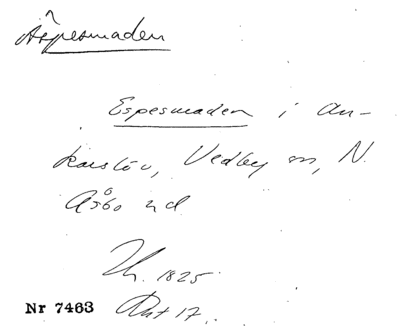 Äspesmaden
Espesmaden i An-
karslöv, Vedby sn, N.
Åsbo hd
Lh. 1825
Nr 7463 Akt 17.